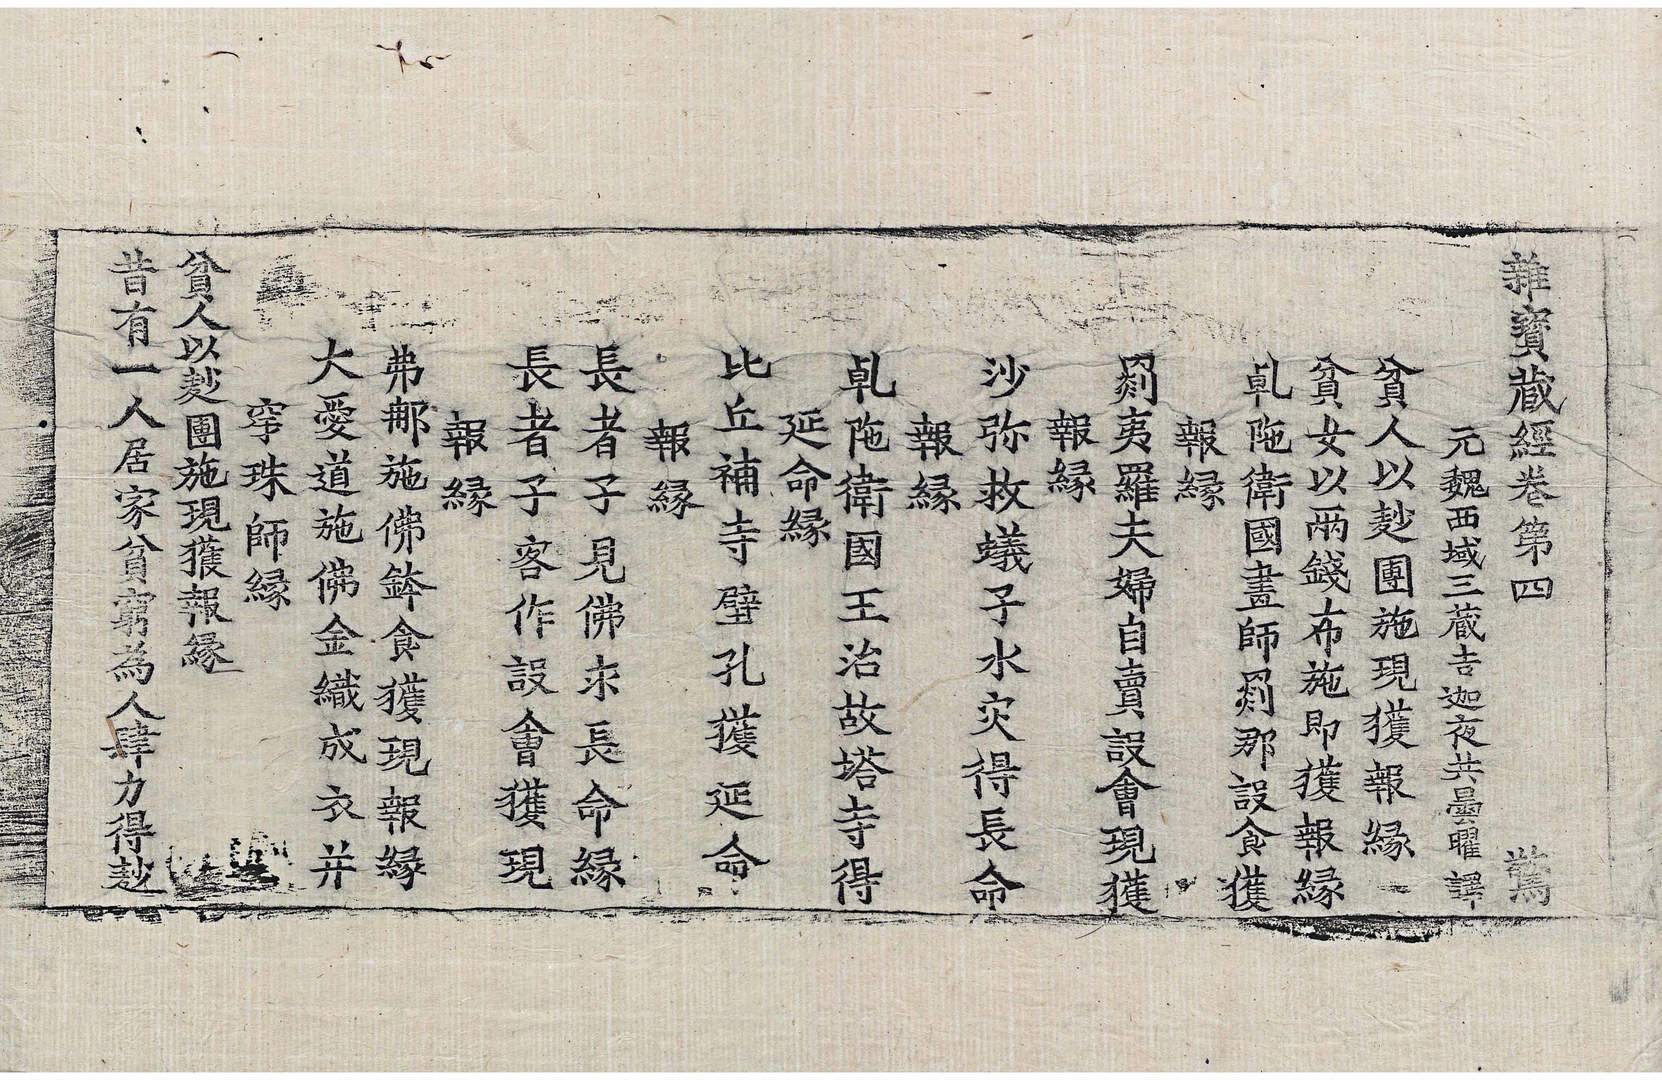 雜寶藏經卷第四 驚
元魏西域三藏吉迦夜共曇曜譯
貧人以麨團施現獲報緣
貧女以兩錢布施即獲報緣
乹陁衛國畫師罽那設食獲
報緣
罽夷羅夫婦自賣設會現獲
報緣
沙弥救蟻子水灾得長命
報緣
乹陁衛國王治故塔寺得
延命緣
比丘補寺壁孔獲延命
報緣
長者子見佛求長命緣
長者子客作設會獲現
報緣
弗那施佛鉢食獲現報緣
大愛道施佛金織成衣并
穿珠師緣
貧人以麨團施現獲報緣
昔有一人居家貧窮為人肆力得麨